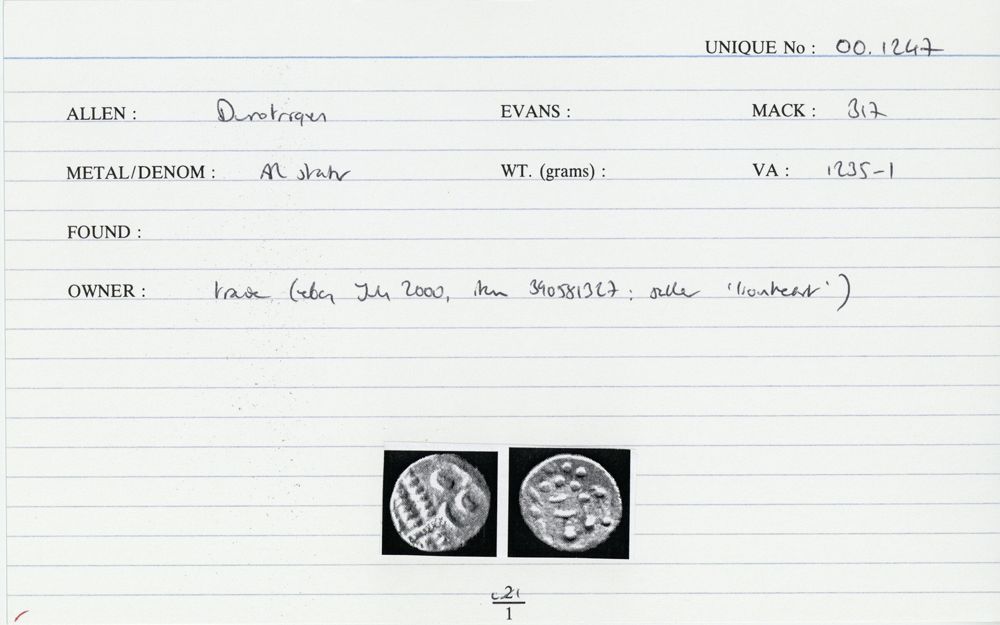 UNIQUE No : 00.1247
ALLEN : Durotriges EVANS : MACK : 317
METAL/DENOM : AR stater WT. (grams) : VA : 1235-1
FOUND :
OWNER : trade (ebay July 2000, item 390581327 : seller 'lionheart')
c21
1